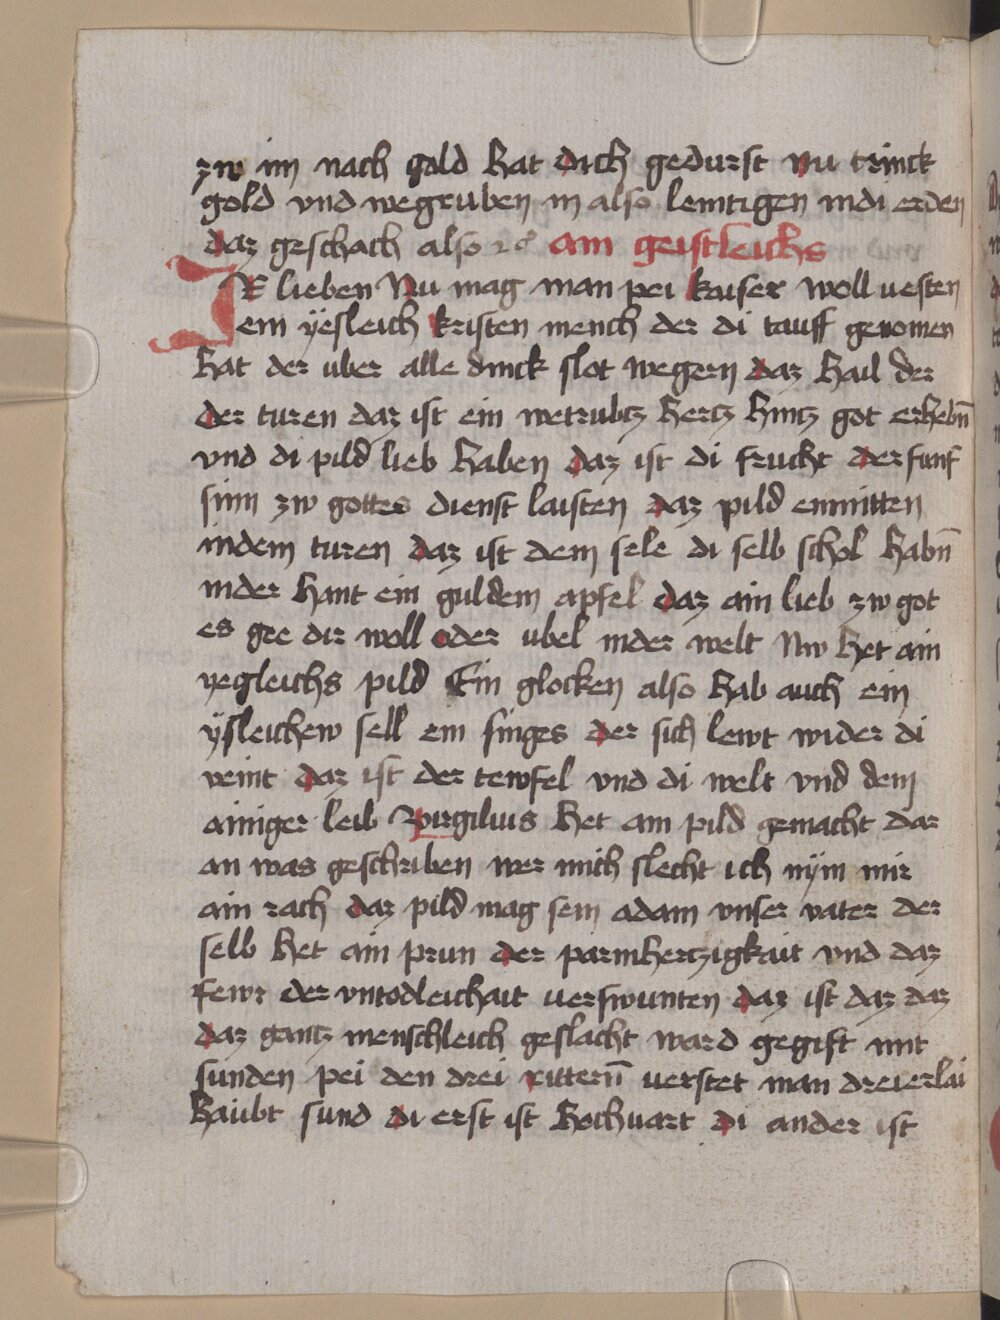 zw im nach gold hat dich gedurst nu trinck
gold vnd wegruben in also lemtigen indi erden
daz geschach also ⁊c̃ ain geistleichs
IR lieben Nu mag man pei kaiser woll uesten
ein ÿesleich kristen mench der di tauff genomen
hat der uber alle dinck slot wegern daz hail der
der turen daz ist ein wetrubtz hertz hintz got erhebn̄
vnd di pild lieb haben daz ist di frucht der funf
sinn zw gottes dienst laisten daz pild enmitten
indem turen daz ist dem sele di selb schol habn̄
inder hant ein guldem apfel daz ain lieb zw got
es gee dir woll oder ubel inder welt Nw het ain
yegleichs pild Ein glocken also hab auch ein
ÿsleichew sell ein singes der sich lewt wider di
veint daz ist der tewfel vnd di welt vnd dem
ainiger leib Virgilius het ain pild gemacht dar
an was geschriben wer mich slecht ich nÿm mir
ain rach daz pild mag sein adam vnser vater der
selb het ain prun der parmhertzigkait vnd daz
fewr der vntodleichait uerswunten daz ist daz daz
daz gantz menschleich geslacht ward gegift mit
sunden pei den drei rittern̄ uerstet man dreierlai
haubt sund di erst ist hochuart di ander ist